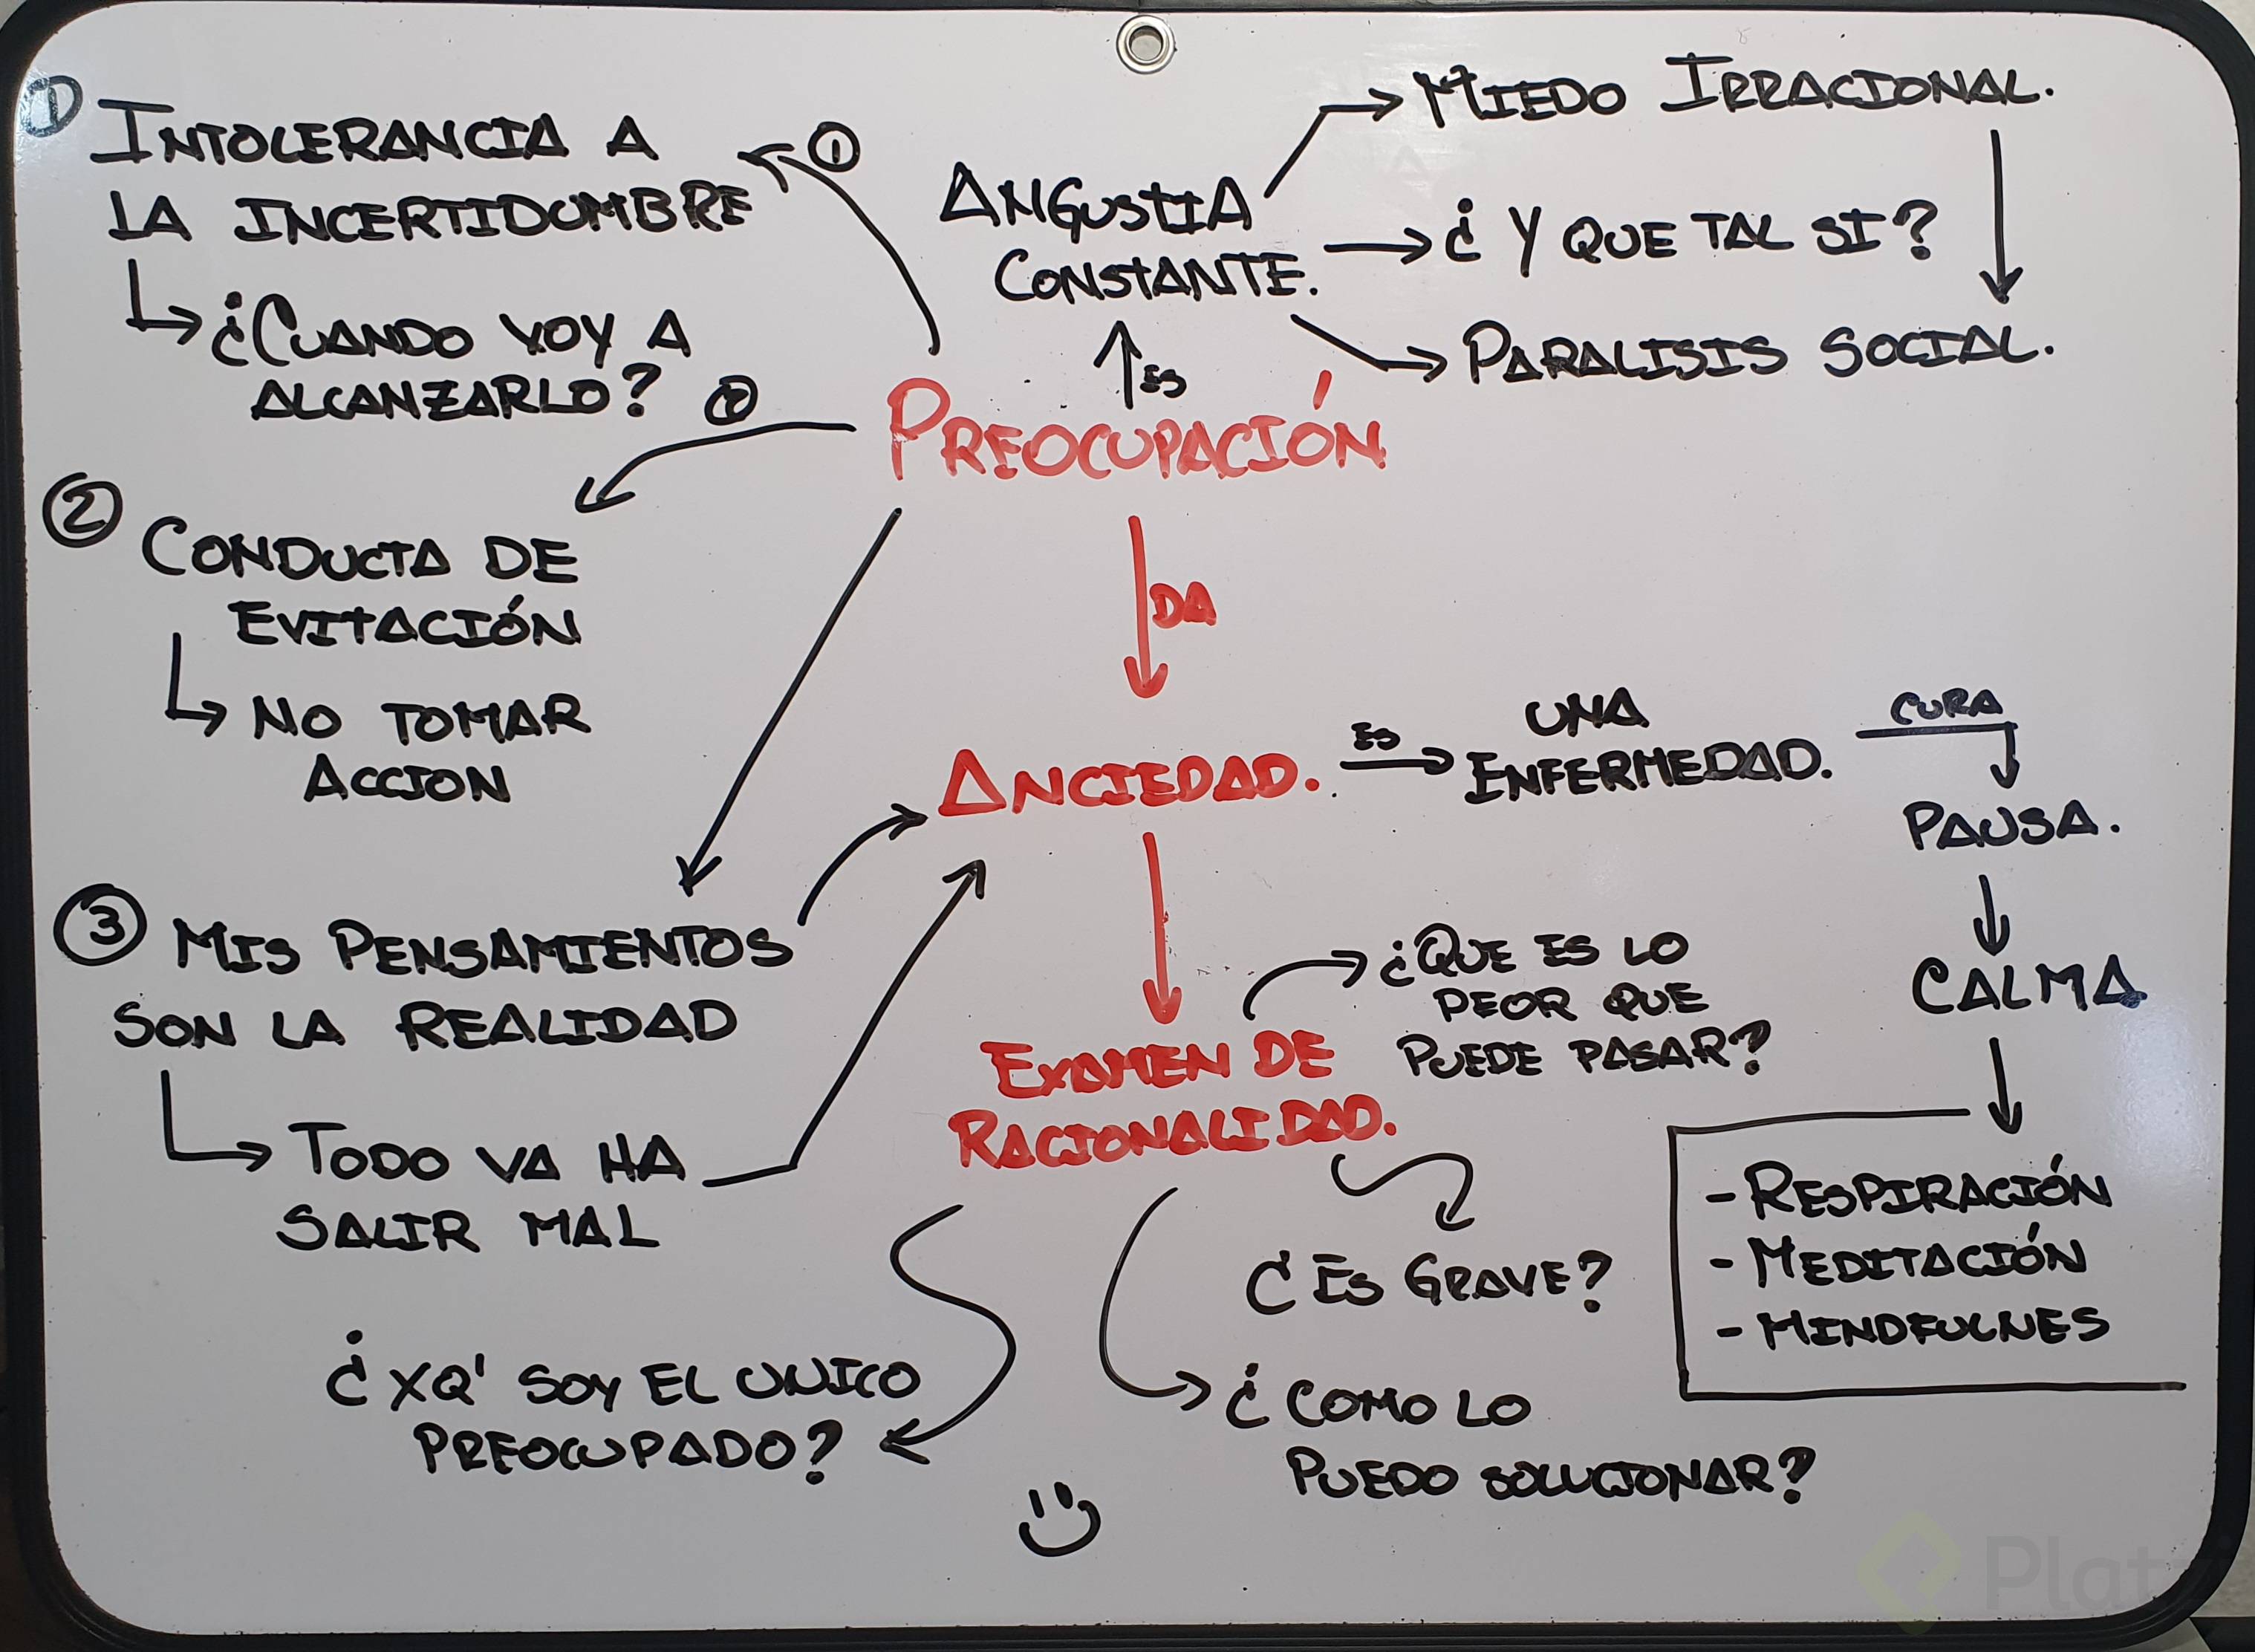 ①
INTOLERANCIA A
LA INCERTIDUMBRE
¿CUANDO VOY A
ALCANZARLO?
①
ANGUSTIA
CONSTANTE.
MIEDO IRRACIONAL.
¿Y QUE TAL SI?
PARALISIS SOCIAL.
ES
PREOCUPACIÓN
②
②
CONDUCTA DE
EVITACIÓN
NO TOMAR
ACCION
DA
ANCIEDAD.
ES
UNA
ENFERMEDAD.
CURA
PAUSA.
CALMA
- RESPIRACIÓN
- MEDITACIÓN
- MINDFULNES
③ MIS PENSAMIENTOS
SON LA REALIDAD
TODO VA HA
SALIR MAL
EXAMEN DE
RACIONALIDAD.
¿QUE ES LO
PEOR QUE
PUEDE PASAR?
¿ES GRAVE?
¿COMO LO
PUEDO SOLUCIONAR?
¿XQ' SOY EL UNICO
PREOCUPADO?
Platzi